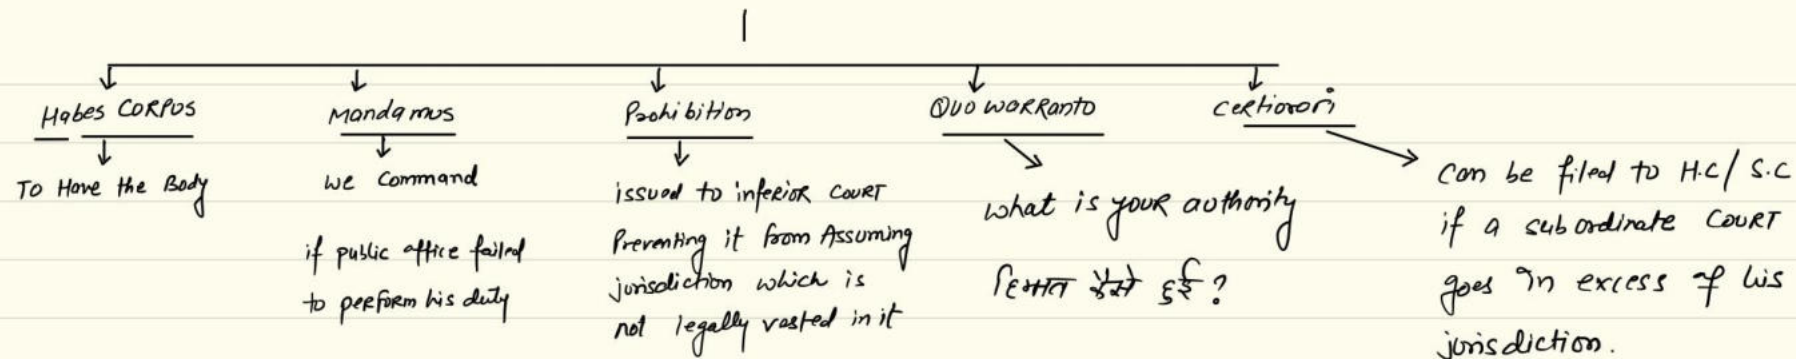 Habes CORPUS
To Have the Body
Mandamus
we command
if public office failed
to perform his duty
Prohibition
issued to inferior COURT
Preventing it from Assuming
jurisdiction which is
not legally vasted in it
QUO WARRANTO
what is your authority
हिम्मत कैसे हुई ?
Certiorari
can be filed to H.C/S.C
if a subordinate COURT
goes in excess of his
jurisdiction.